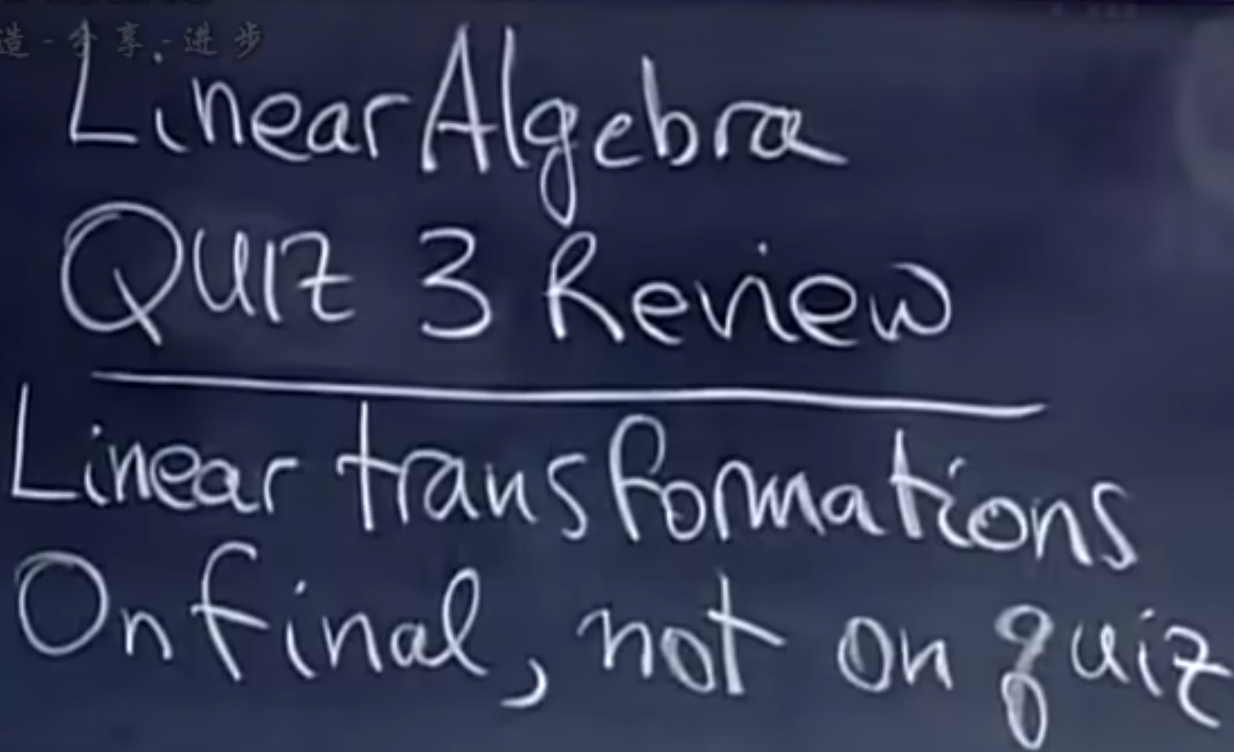 造-分享-进步
Linear Algebra
QUIZ 3 Review
Linear transformations
On final, not on quiz